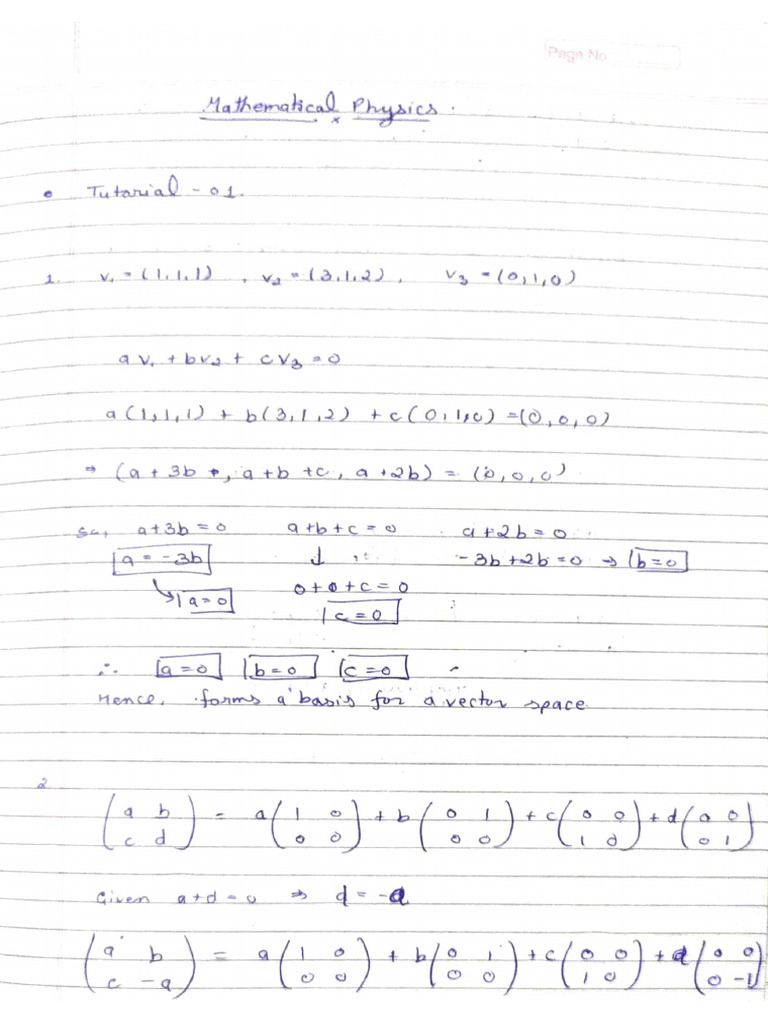 Page No
Mathematical Physics.
• Tutorial - 01.
1. v₁ = (1,1,1) , v₂ = (3,1,2), v₃ = (0,1,0)
av₁ + bv₂ + cv₃ = 0
a(1,1,1) + b(3,1,2) + c(0,1,0) = (0,0,0)
⇒ (a+3b, a+b+c, a+2b) = (0,0,0)
So, a+3b=0 a+b+c=0 a+2b=0
a=-3b ↓ -3b+2b=0 → b=0
a=0 0+0+c=0
c=0
∴ a=0 b=0 c=0
Hence, forms a basis for a vector space.
2
(a b) = a(1 0) + b(0 1) + c(0 0) + d(0 0)
(c d) (0 0) (0 0) (1 0) (0 1)
Given a+d=0 ⇒ d=-a
(a b) = a(1 0) + b(0 1) + c(0 0) + a(0 0)
(c -a) (0 0) (0 0) (1 0) (0 -1)